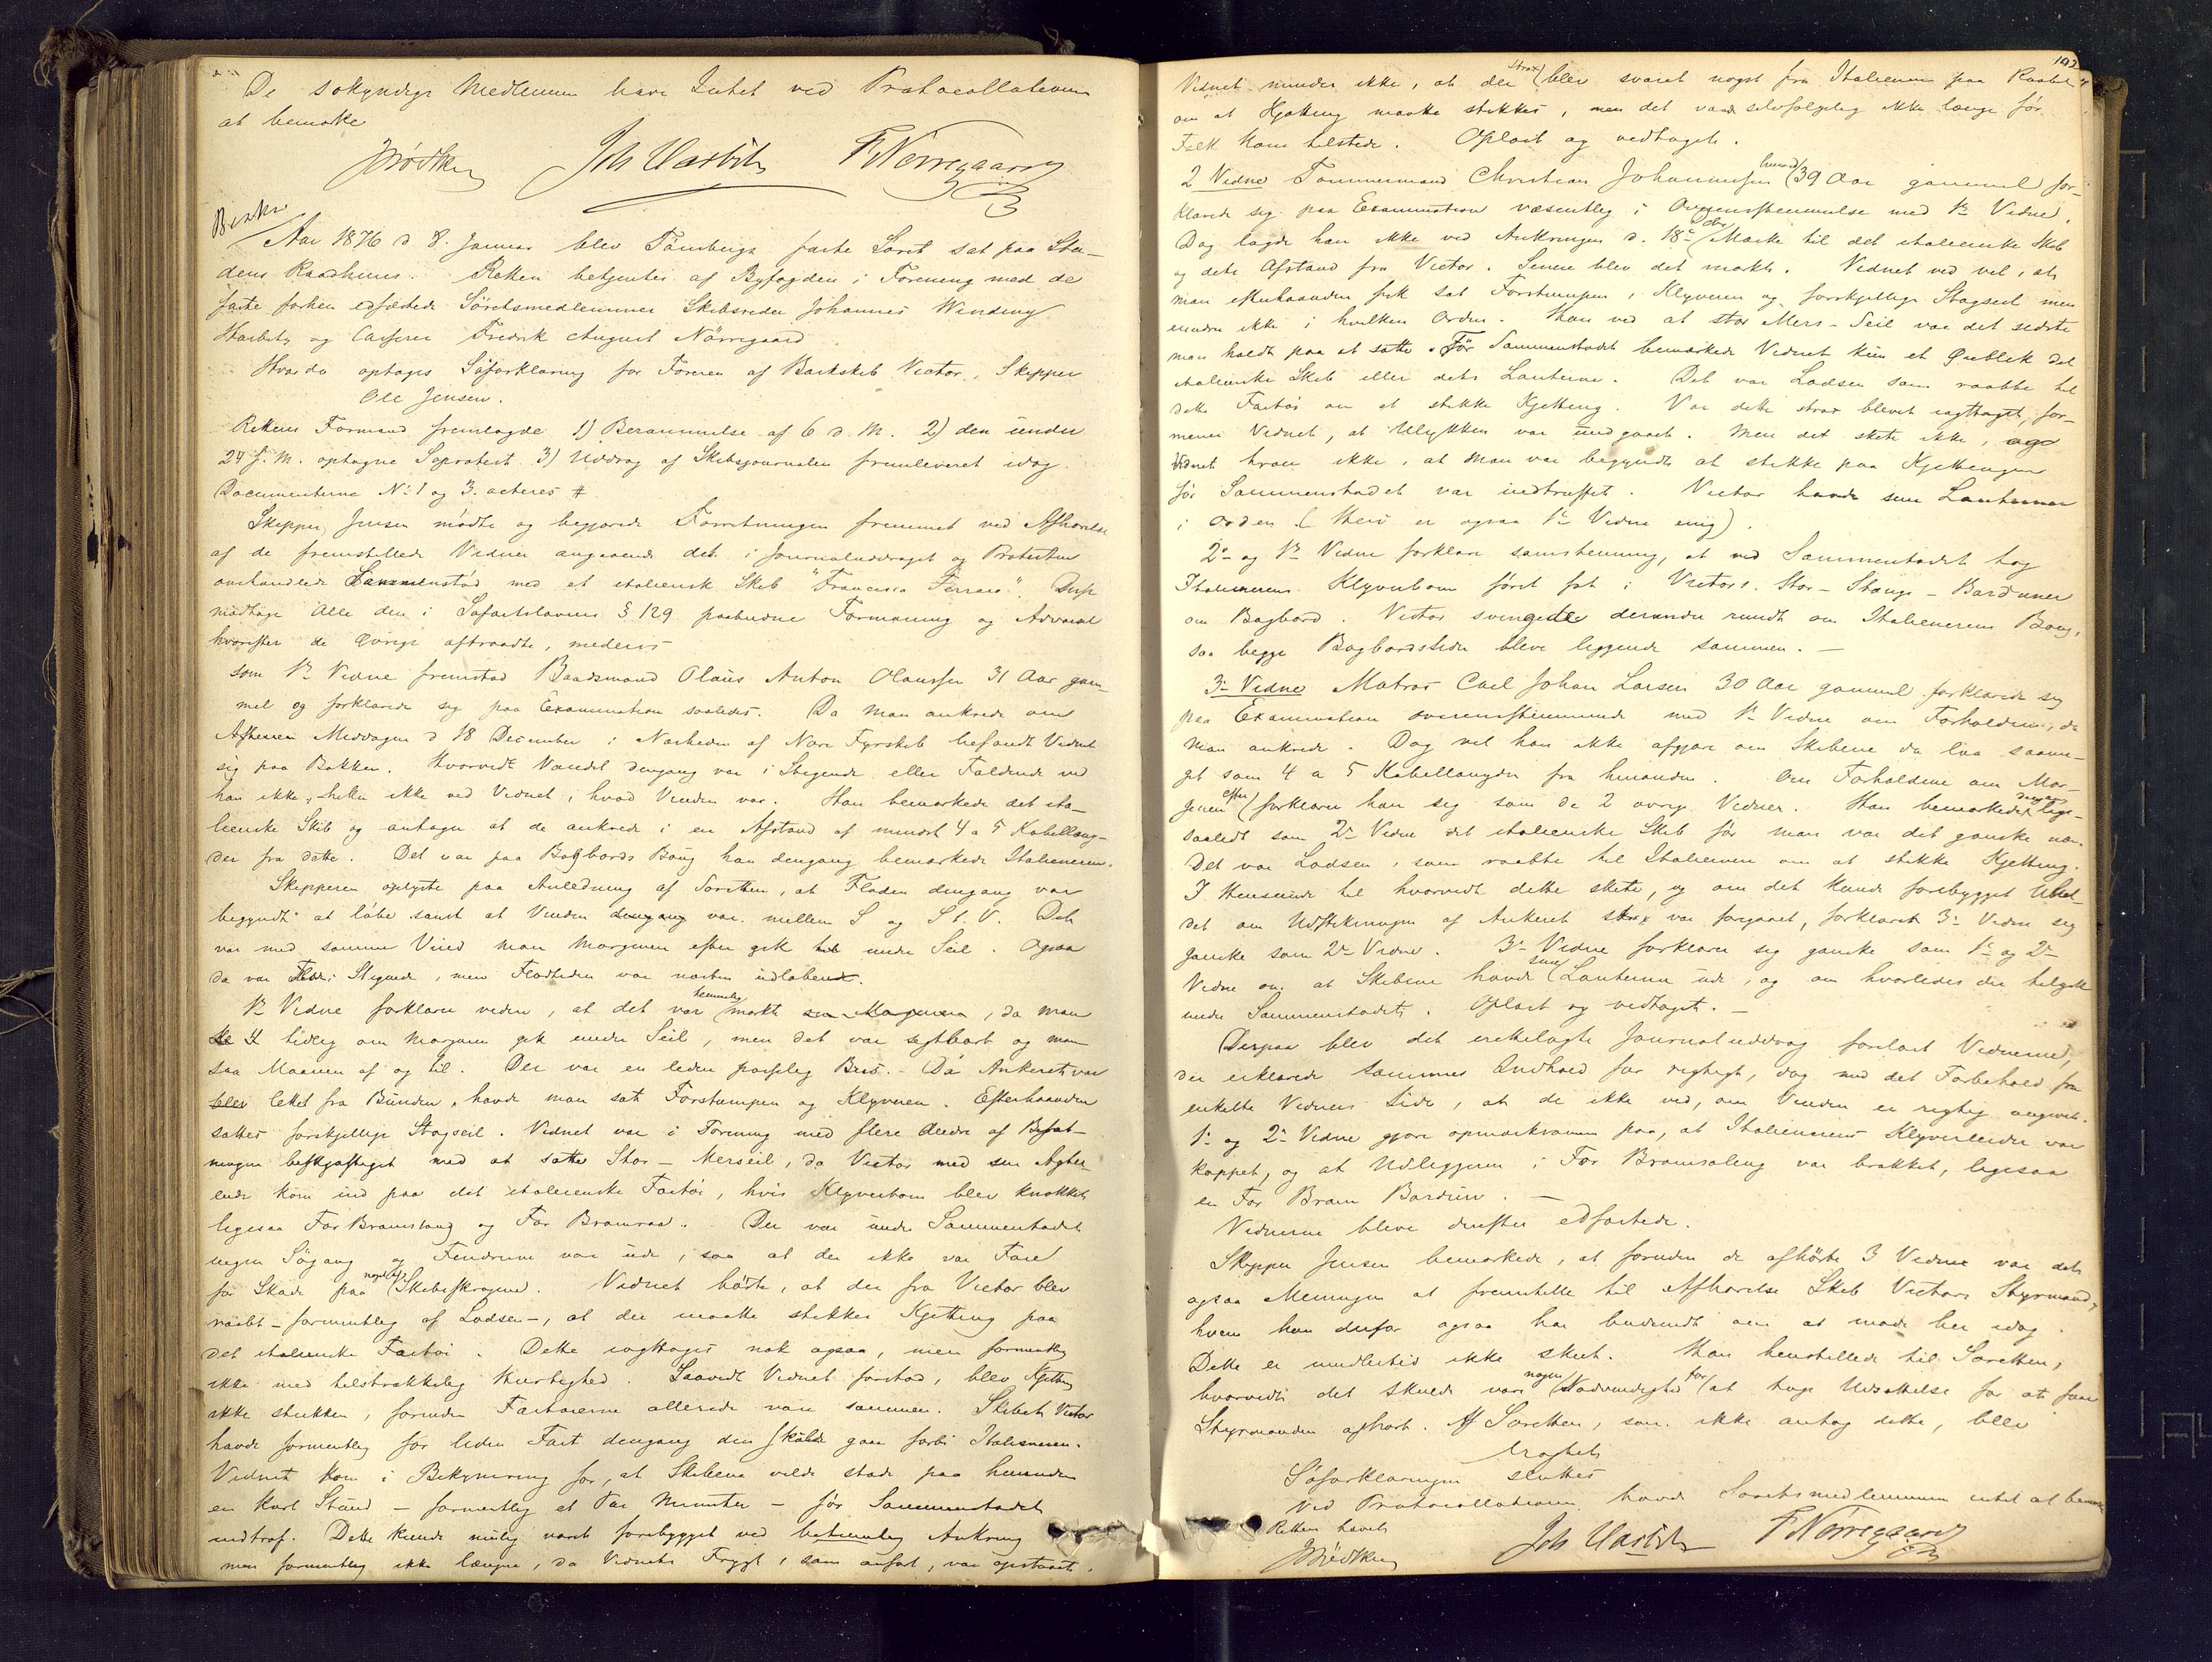 De søkyndige Medlemmer have Intet ved Protocollationen
at bemærke
Joh Haslith F Nørregaard
Aar 1876 d 8. Januar blev Tønsbergs faste Søret sat paa Sta-
dens Raadhuus. Retten betjentes af Byfogden i Forening med de
faste forhen edfæstede Søretsmedlemmer Skibsreder Johannes Winding
og Casserer Fredrik August Nörregaard
Hvorda optoges Söforklaring for Föreren af Barkskib Victor, Skipper
Ole Jensen.
Rettens Formand fremlagde 1) Berammelse af 6 d. M. 2) den under
24 f. M. optagne Søprotest 3) Uddrag af Skibsjournalen fremleveret idag.
Documenterne No 1 og 3. acteres #
Skipper Jensen mödte og begjærede Forretningen fremmet ved Afhørelse
af de fremstillede Vidner angaaende det i Journaluddraget og Protesten
omhandlede Sammenstöd med et italiensk Skib "Francesca Ferraro". Disse
modtoge Alle den i Søfartslovens § 129 paabudne Formaning og Advarsel
hvorefter de Øvrige aftraadte, medens
som 1ste Vidne fremstod Baadsmand Olaus Anton Olaussen 31 Aar gam-
mel og forklarede sig paa Examination saaledes. Da man ankrede om
Aftenen Middagen d 18 December i Nærheden af Nore Fyrskib befandt Vidnet
sig paa Bakken. Hvorvidt Vandet dengang var i Stigende eller Faldende ved
han ikke, heller ikke ved Vidnet, hvad Vinden var. Han bemærkede det ita-
lienske Skib og antager at de ankrede i en Afstand af mindst 4 a 5 Kabellæng-
der fra dette. Det var paa Bagbords Boug han dengang bemærkede Italieneren.
Skipperen oplyste paa Anledning af Søretten, at Floden dengang var
begyndt at löbe samt at Vinden dengang var mellem S og S t. V. Det
var med samme Vind man Morgenen efter gik under Seil. Ogsaa
da var Flod i Stigende, men Flodtiden var næsten udløbende.
1ste Vidne forklarer videre, at det var temmelig mørkt om Morgenen, da man
Kl 4 tidlig om Morgenen gik under Seil, men det var sigtbart og man
saa Maanen af og til. Der var en liden passelig Bris. Da Ankeret var
blev lettet fra Bunden, havde man sat Forstumpen og Klyveren. Efterhaanden
sattes forskjellige Stagseil. Vidnet var i Forening med flere Andre af Besæt-
ningen beskjæftiget med at sætte Stor-Merseil, da Victor med sin Agter-
ende kom ind paa det italienske Fartöi, hvis Klyverbom blev knækket
ligesaa For Bramstang og For Bramraa. Der var under Sammenstødet
ingen Sögang og Fenderne var ude, saa at der ikke var Fare
for Skade paa nogle af Skibsskrogene. Vidnet hörte, at der fra Victor blev
raabt - formentlig af Lodsen -, at der maatte stikkes Kjetting paa
det italienske Fartöi. Dette iagttoges nok ogsaa, men formentlig
ikke med tilstrækkelig Hurtighed. Saavidt Vidnet forstod, blev Kjetting
ikke stukken, forinden Fartøierne allerede vare sammen. Skibet Victor
havde formentlig for liden Fart dengang den skulde gaa forbi Italieneren.
Vidnet kom i Bekymring for, at Skibene vilde støde paa hinanden
en kort Stund - formentlig et Par Minuter - før Sammenstødet
indtraf. Dette kunde mulig været forebygget ved betimelig Ankring
men formentlig ikke længere, da Vidnets Frygt, som anført, var opstaaet.
192
Vidnet mindes ikke, at der strax blev svaret noget fra Italieneren paa Raabet
om at Kjetting maatte stikkes, men det vared selvfølgelig ikke længe för
Folk kom tilstede. Oplæst og vedtaget.
2 Vidne Tømmermand Christian Johannessen 39 Aar gammel for-
klarede sig paa Examination væsentlig i Overensstemmelse med 1ste Vidne.
Dog lagde han ikke ved Ankringen d. 18de Mærke til det italienske Skib
og dets Afstand fra Victor. Senere blev det mørkt. Vidnet ved vel, at
man efterhaanden fik sat Forstumpen, Klyveren og forskjellige Stagseil men
erindrer ikke i hvilken Orden. Han ved at stor Mers-Seil var det sidste
man holdt paa at sætte. Før Sammenstødet bemærkede Vidnet kun et Øieblik det
italienske Skib eller dets Lanterne. Det var Lodsen som raabte til
dette Fartöi om at stikke Kjetting. Var dette strax blevet iagttaget, for-
mener Vidnet, at Ulykken var undgaaet. Men det skete ikke, og
Vidnet tror ikke, at man var begyndt at stikke paa Kjettingen
för Sammenstødet var indtruffet. Victor havde sine Lanterner
i Orden. (Heri er ogsaa 1ste Vidne enig).
2det og 1ste Vidne forklare samstemmig, at ved Sammenstødet tog
Italienerens Klyverbom først fat i Victors Stor-Stænge-Barduner
om Bagbord. Victor svingede derunder rundt om Italienerens Boug,
saa begge Bagbordssider bleve liggende sammen. —
3die Vidne Matros Carl Johan Larsen 30 Aar gammel forklarede sig
paa Examination overensstemmende med 1ste Vidne om Forholdene, da
man ankrede. Dog vil han ikke afgjøre om Skibene da laa saame-
get som 4 a 5 Kabellængder fra hinanden. Om Forholdene om Mor-
genen efter forklarer han sig som de 2 øvrige Vidner. Han bemærkede lige-
saalidt som 2det Vidne det italienske Skib før man var det ganske nær.
Det var Lodsen, som raabte til Italieneren om at stikke Kjetting.
I Henseende til hvorvidt dette skete, og om det kunde forebygget Uhel-
det om Udstikningen af Ankeret strax var foregaaet, forklaret 3die Vidne sig
ganske som 2det Vidne. 3die Vidne forklarer sig ganske som 1ste og 2det
Vidne om at Skibene havde sine Lanterner ude, og om hvorledes det tilgik
under Sammenstødet. Oplæst og vedtaget. —
Derpaa blev det irettelagte Journaluddrag forelæst Vidnerne,
der erklærede sammes Indhold for rigtigt, dog med det Forbehold fra
enkelte Vidners Side, at de ikke ved, om Vinden er rigtig angivet.
1ste og 2det Vidne gjøre opmærksomme paa, at Italienerens Klyverleider var
kappet, og at Udliggeren i For Bramsaling var brækket, ligesaa
en For Bram Bardun. —
Vidnerne bleve derefter edfæstede.
Skipper Jensen bemærkede, at foruden de afhørte 3 Vidner var det
ogsaa Meningen at fremstille til Afhørelse Skib Victors Styrmand,
hvem han derfor ogsaa har budsendt om at møde her idag.
Dette er imidlertid ikke skeet. Han henstillede til Søretten,
hvorvidt det skulde være nogen Nødvendighed for at tage Udsættelse for at faae
Styrmanden afhørt. Af Søretten, som ikke antog dette, blev
Søforklaringen sluttet
Ved Protocollationen havde Søretsmedlemmerne intet at bemærke
Retten hævet
Joh Haslith F Nørregaard